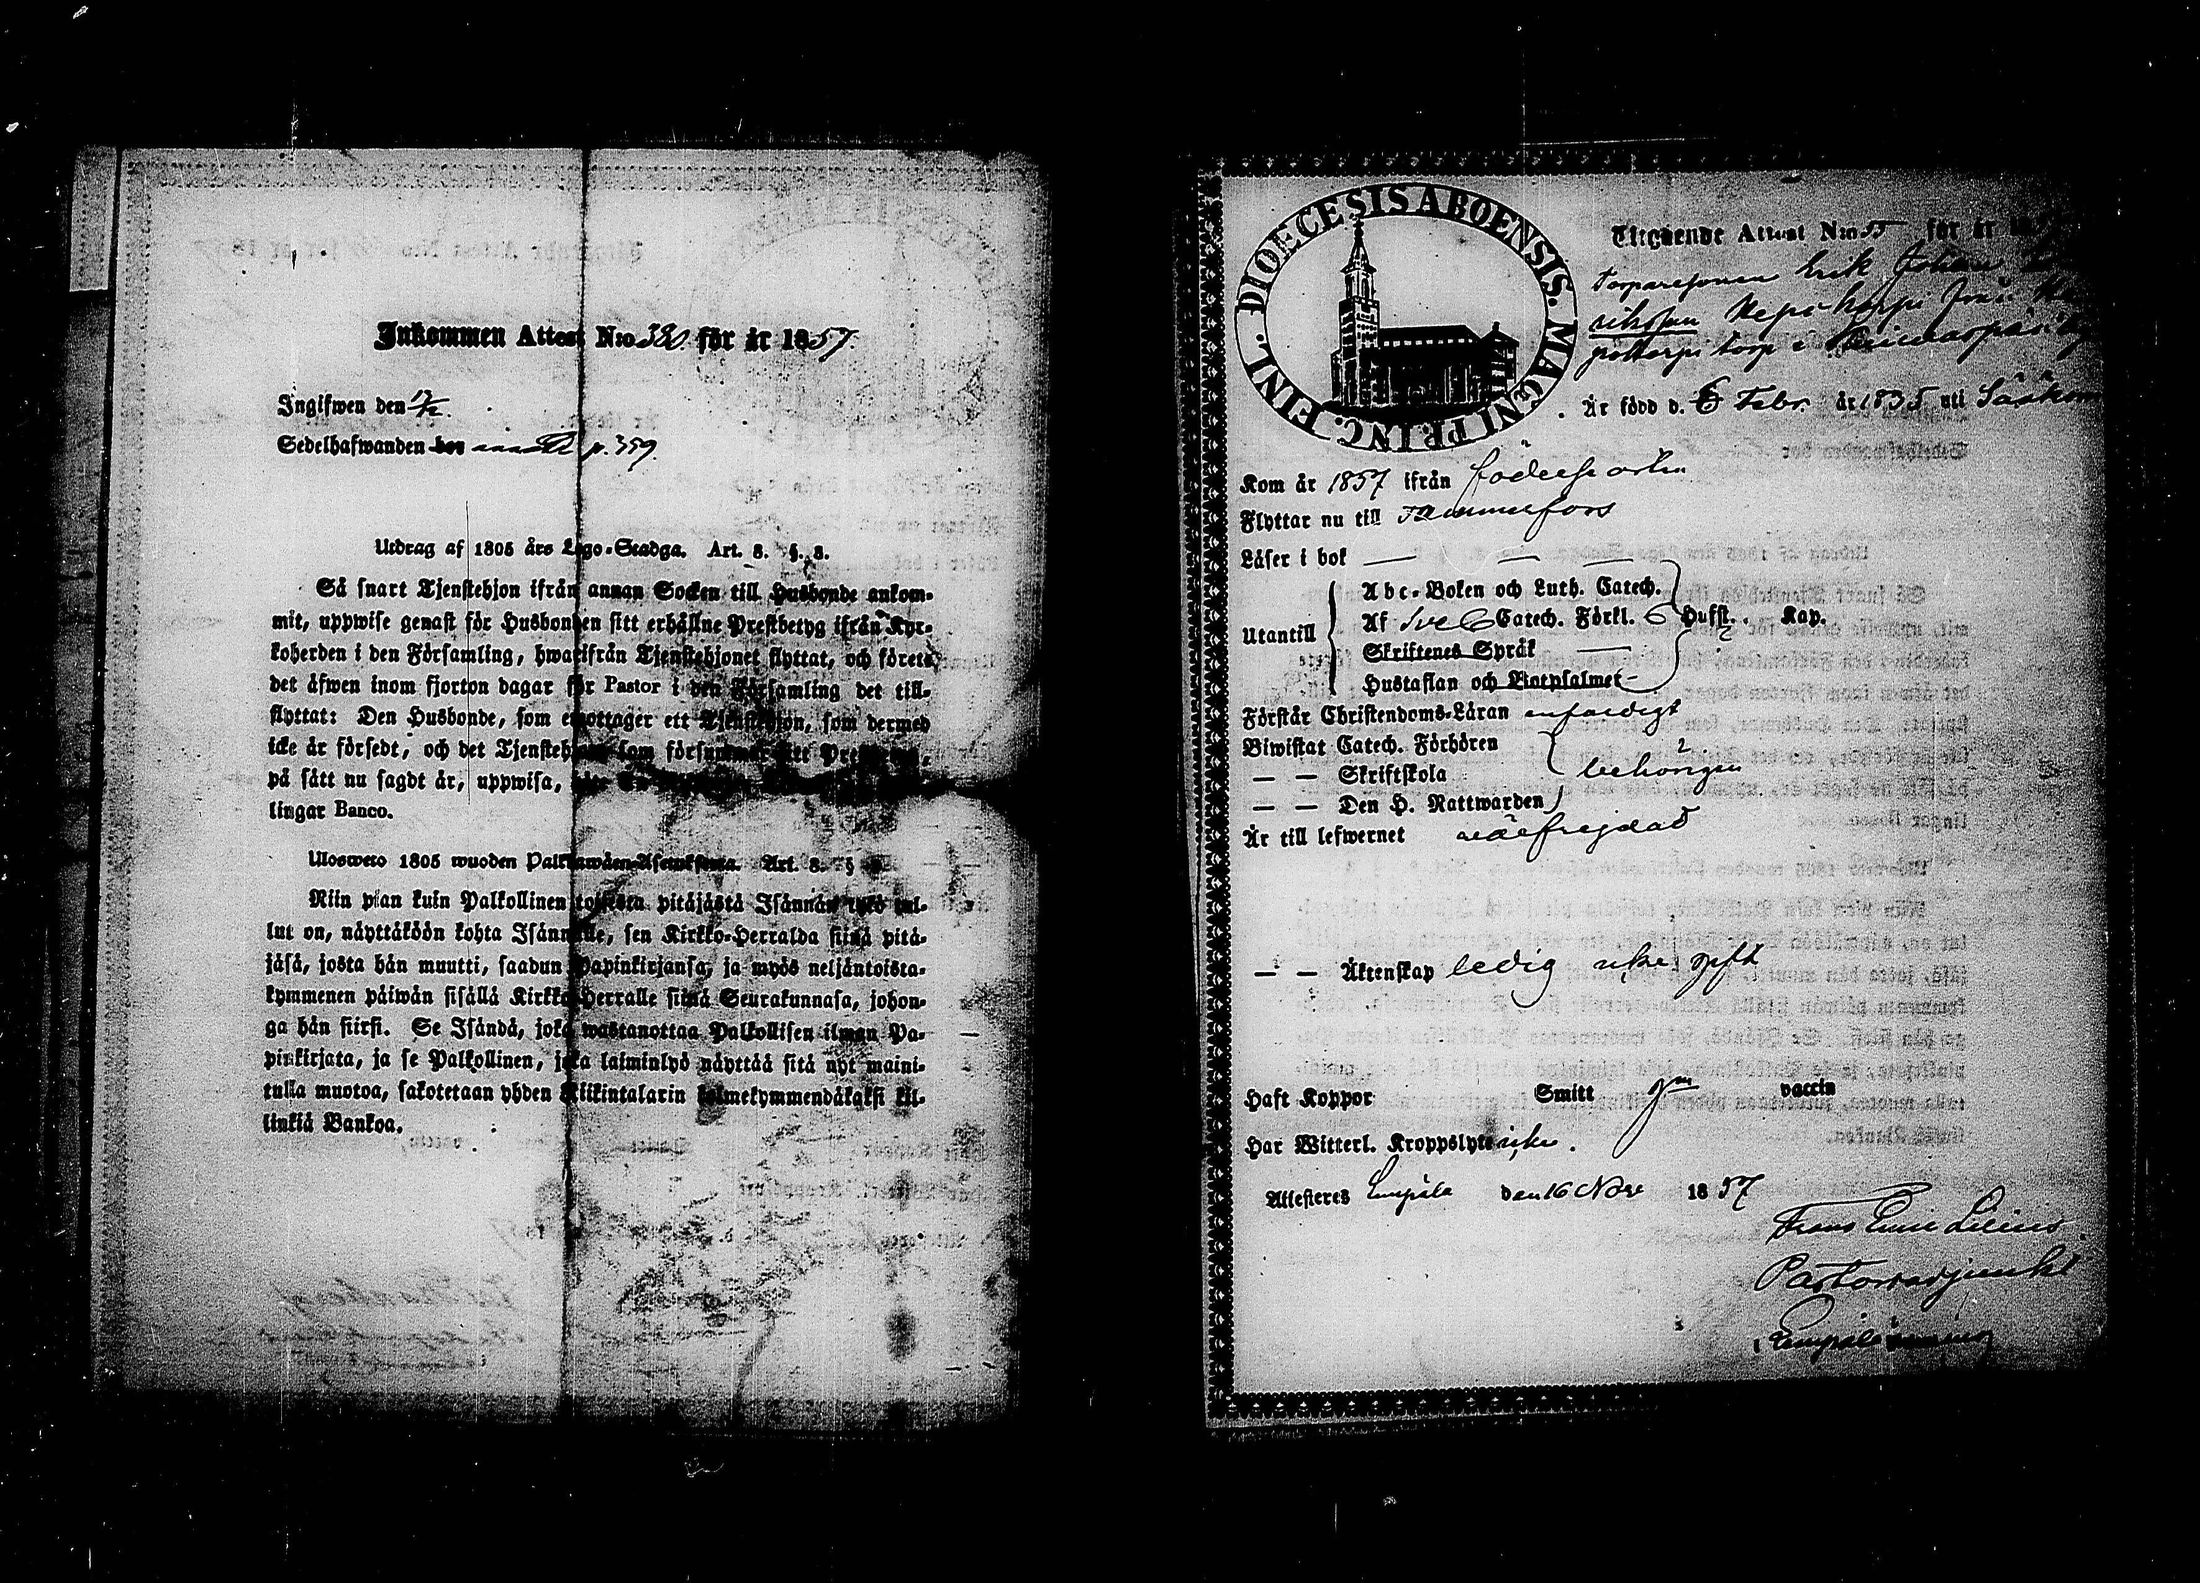 Inkommen Attest N:o 380. för år 1857.
Ingifwen den 17/12.
Sedelhafwanden bor p. 359.
Utdrag af 1805 års Lego-Stadga. Art. 8. §. 8.
Så snart Tjenstehjon ifrån annan Socken till Husbonde ankom-
mit, uppwise genast för Husbonden sitt erhållne Prestbetyg ifrån Kyr-
koherden i den Församling, hwarifrån Tjenstehjonet flyttat, och förete
det äfwen inom fjorton dagar för Pastor i den Församling det till-
flyttat: Den Husbonde, som emottager ett Tjenstehjon, som dermed
icke är försedt, och det Tjenstehjon som försummar sitt
på sätt nu sagdt är, uppwisa,
lingar Banco.
Ulosweto 1805 wuoden Palkkawäen-Asetuksesta. Art. 8. §
Niin pian kuin Palkollinen toisesta pitäjästä Isännän tykö tul-
lut on, näyttäköön kohta Isännälle, sen Kirkko-Herralda siinä pitä-
jäsä, josta hän muutti, saadun Papinkirjansa, ja myös neljäntoista-
kymmenen päiwän sisällä Kirkko-Herralle siinä Seurakunnasa, johon-
ga hän siirsi. Se Isändä, joka wastanottaa Palkollisen ilman Pa-
pinkirjata, ja se Palkollinen, joka laiminlyö näyttää sitä nyt maini-
tulla muotoa, sakotetaan yhden Riikintalarin kolmekymmendäkaksi kil-
linkiä Bankoa.
DIOECESIS ABOENSIS. MAGNI PRINC. FINL.
Utgående Attest N:o 55 för år 18
Torparesonen Erik Johan
från
torp i
Är född d. 6 Febr. år 1835 uti Sääksm
Kom år 1857 ifrån födelseorten
Flyttar nu till Tammerfors
Läser i bok — — —
Utantill
Abc-Boken och Luth. Catech.
Af Sveb Catech. Förkl. 6 Hufst. Kap.
Skriftenes Språk —
Hustaflan och Botpsalmer -
Förstår Christendoms-Läran enfaldigt
Biwistat Catech. Förhören
— — Skriftskola behörigen
— — Den H. Nattwarden
Är till lefwernet wälfrejdad
— — Äktenskap ledig icke gift
Haft Koppor Smitt gm vaccin
Har Witterl. Kroppslyte icke.
Attesteres Lempäla den 16 Nov 1857
Frans Emil Lilius.
Pastorsadjunkt
i Lempäla